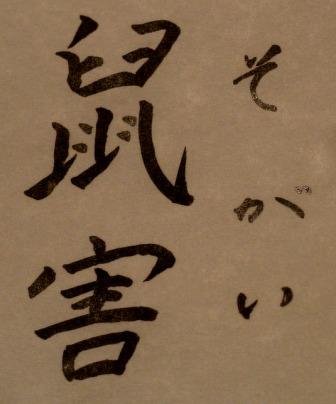 そがい
鼠害